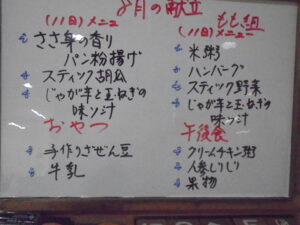 8月の献立
(11日)メニュー
ささ身の香り
パン粉揚げ
スティック胡瓜
じゃが芋と玉ねぎの
味ソ汁
おやつ
手作りぎぜん豆
牛乳
もも組
(11日)メニュー
米粥
ハンバーグ
スティック野菜
じゃが芋と玉ねぎの
味ソ汁
午後食
クリームチキン粥
人参しりしり
果物